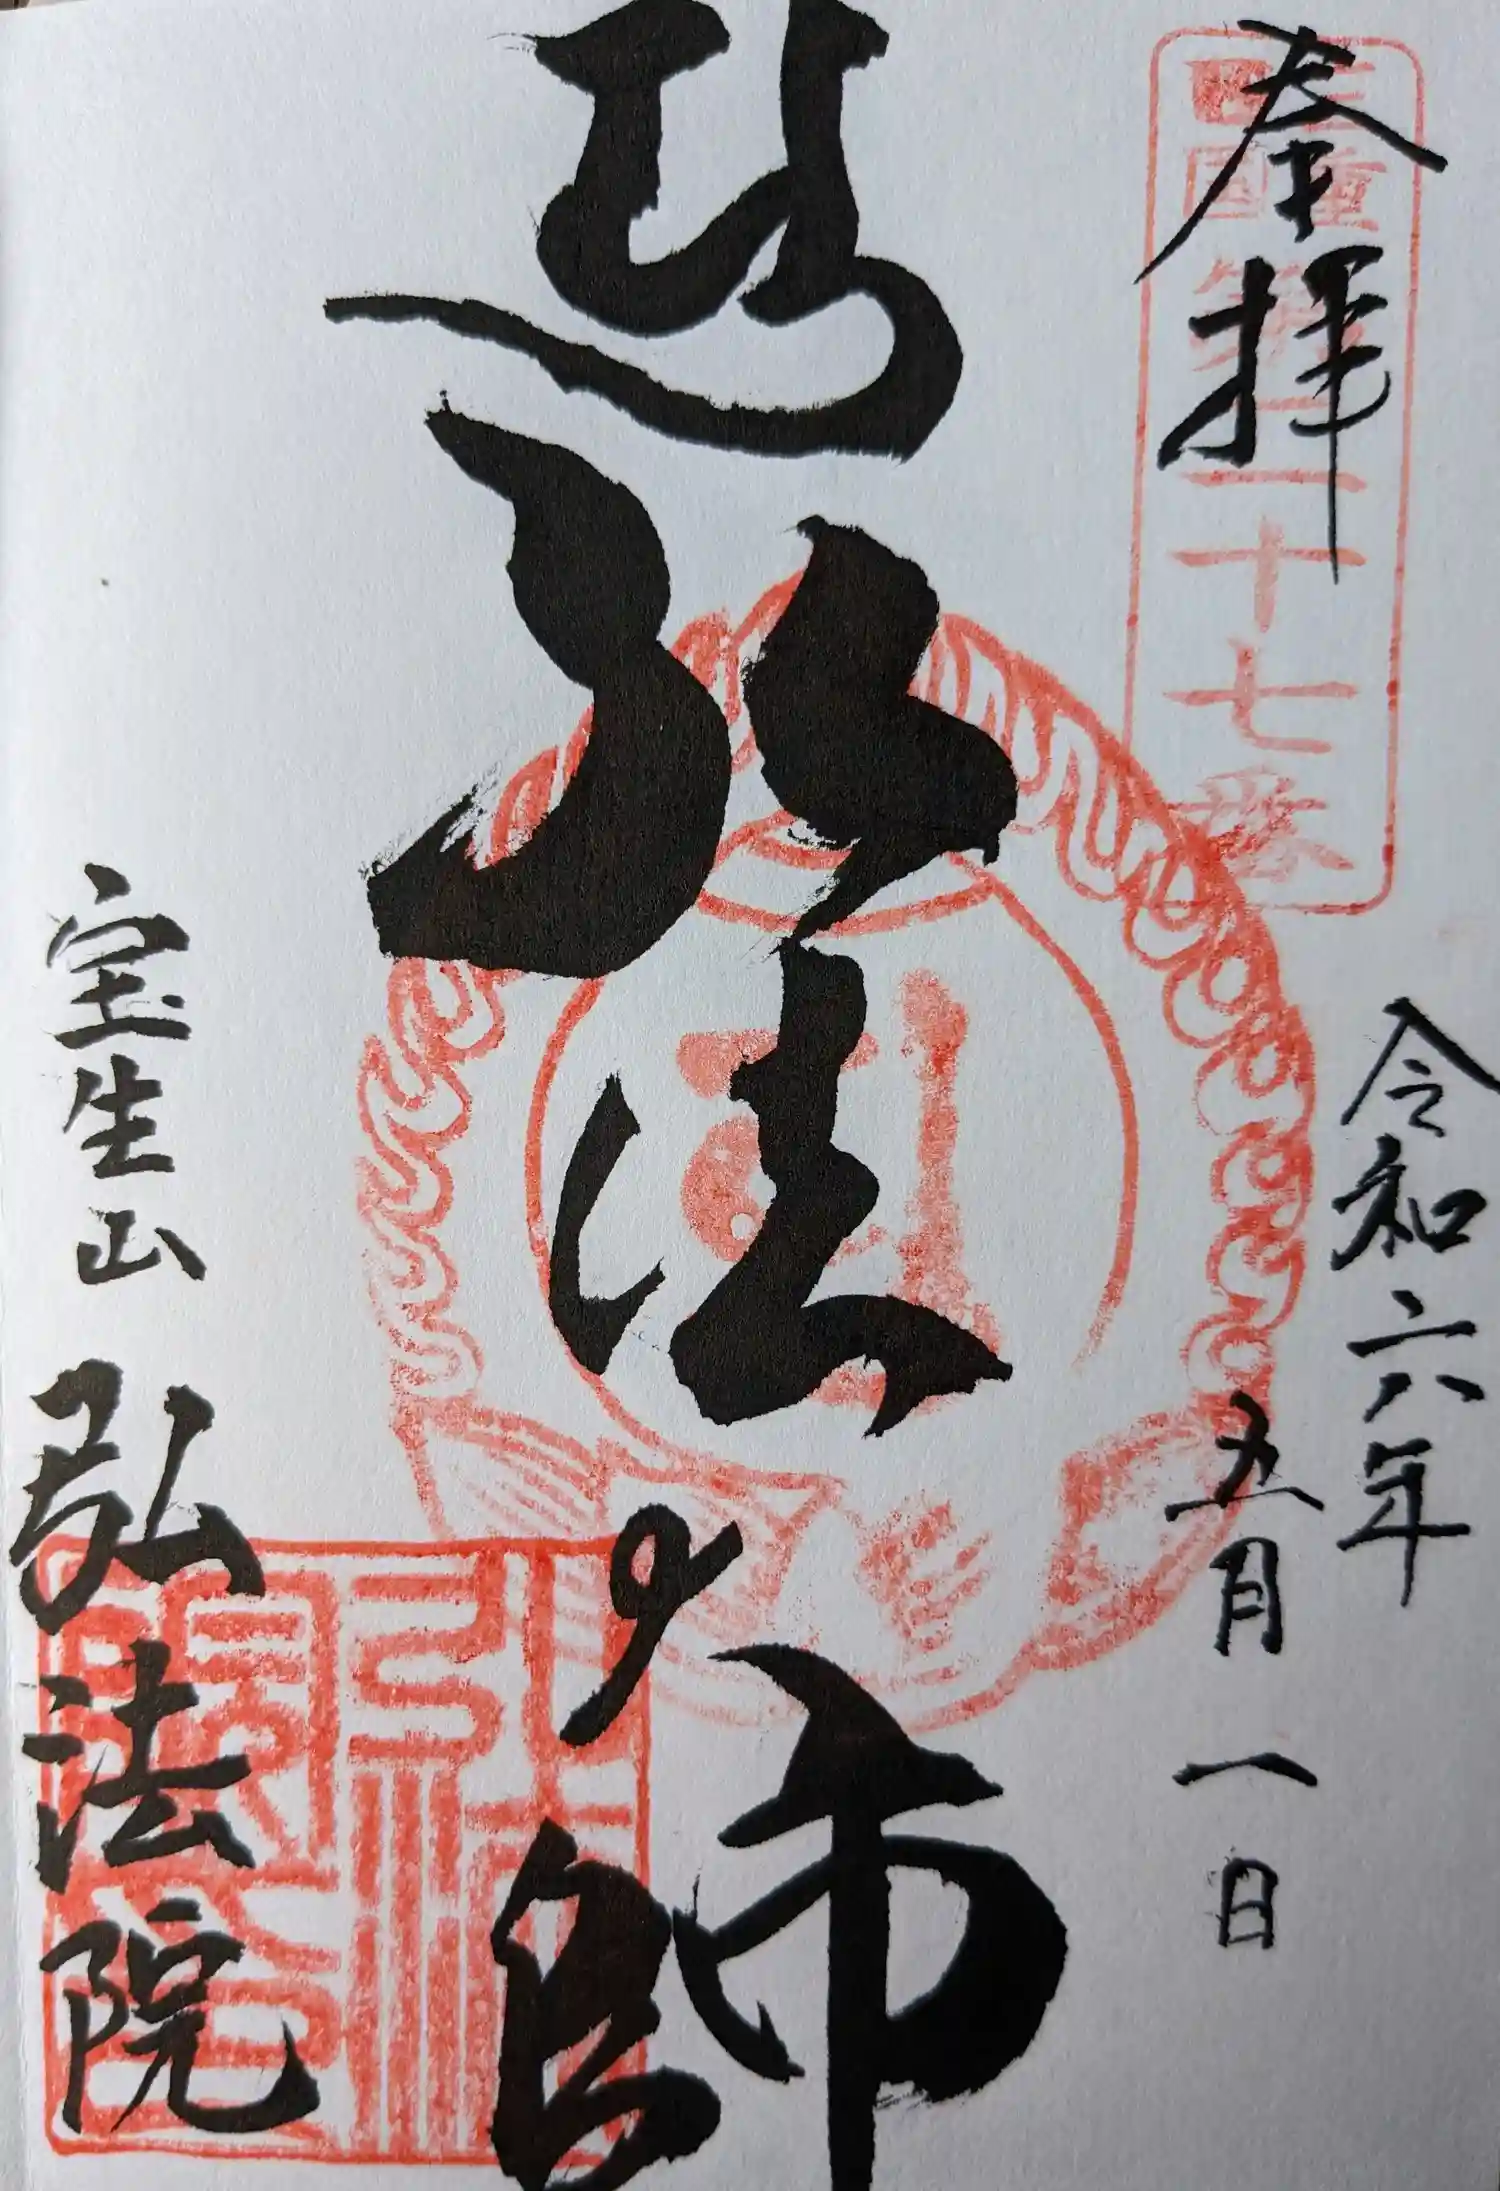 奉拝
三重
四国
第二十七番
令和六年
五月一日
弘法大師
宝生山 弘法院